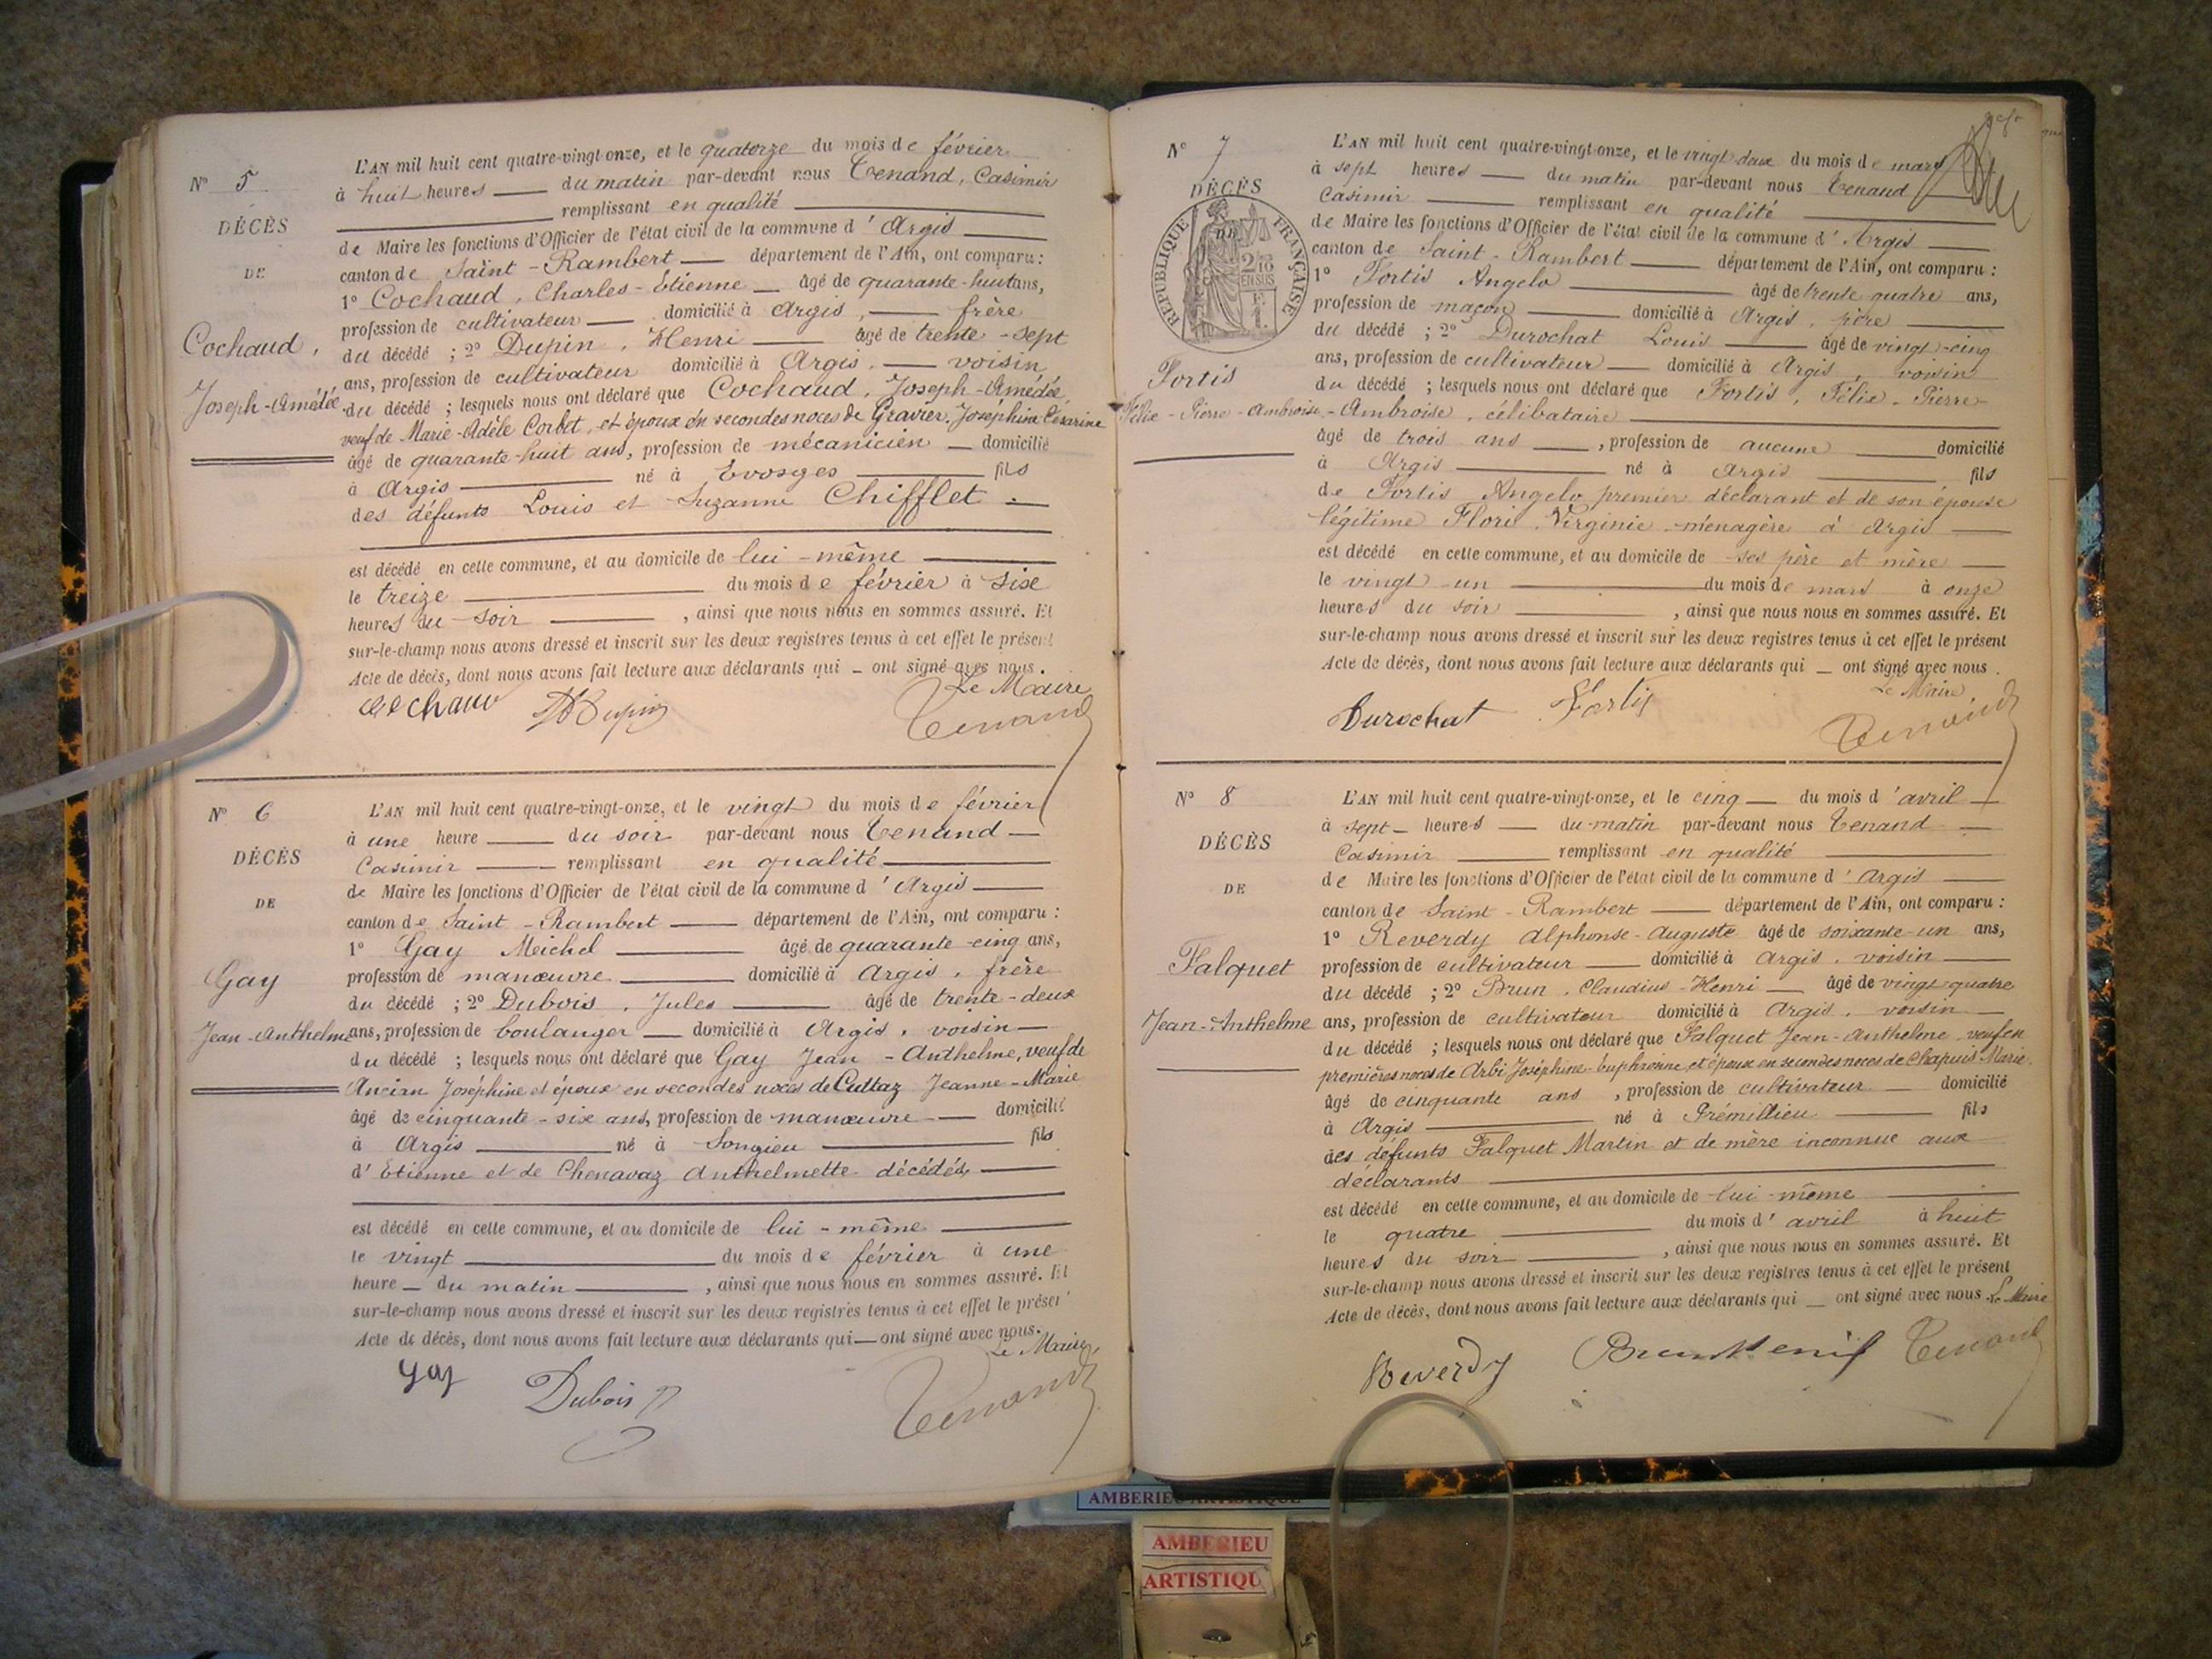 N° 5
DÉCÈS
DE
Cochaud,
Joseph-Amédée
L'AN mil huit cent quatre-vingt-onze, et le quatorze du mois de février
à huit heures du matin par-devant nous Tenand, Casimir
remplissant en qualité
de Maire les fonctions d'Officier de l'état civil de la commune d'Argis
canton de Saint-Rambert département de l'Ain, ont comparu :
1° Cochaud, Charles-Etienne âgé de quarante-huit ans,
profession de cultivateur domicilié à Argis, frère
du décédé ; 2° Dupin, Henri âgé de trente-sept
ans, profession de cultivateur domicilié à Argis, voisin
du décédé ; lesquels nous ont déclaré que Cochaud, Joseph-Amédée,
veuf de Marie-Adèle Corbet, et époux en secondes noces de Gravier, Josephine Césarine
âgé de quarante-huit ans, profession de mécanicien domicilié
à Argis né à Evosges fils
des défunts Louis et Suzanne Chifflet.
est décédé en cette commune, et au domicile de lui-même
le treize du mois de février à six
heures du soir, ainsi que nous nous en sommes assuré. Et
sur-le-champ nous avons dressé et inscrit sur les deux registres tenus à cet effet le présent
Acte de décès, dont nous avons fait lecture aux déclarants qui ont signé avec nous.
Le Maire
Dupin Tenand
N° 6
DÉCÈS
DE
Gay
Jean-Anthelme
L'AN mil huit cent quatre-vingt-onze, et le vingt du mois de février
à une heure du soir par-devant nous Tenand
Casimir remplissant en qualité
de Maire les fonctions d'Officier de l'état civil de la commune d'Argis
canton de Saint-Rambert département de l'Ain, ont comparu :
1° Gay Michel âgé de quarante-cinq ans,
profession de manœuvre domicilié à Argis, frère
du décédé ; 2° Dubois, Jules âgé de trente-deux
ans, profession de boulanger domicilié à Argis, voisin
du décédé ; lesquels nous ont déclaré que Gay Jean-Anthelme, veuf de
Ancian Joséphine et époux en secondes noces de Cuttaz Jeanne-Marie
âgé de cinquante-six ans, profession de manœuvre domicilié
à Argis né à Songieu fils
d'Etienne et de Chenavaz Anthelmette décédés
est décédé en cette commune, et au domicile de lui-même
le vingt du mois de février à une
heure du matin, ainsi que nous nous en sommes assuré. Et
sur-le-champ nous avons dressé et inscrit sur les deux registres tenus à cet effet le présent
Acte de décès, dont nous avons fait lecture aux déclarants qui ont signé avec nous.
Le Maire,
Gay Dubois Tenand
N° 7
DÉCÈS
RÉPUBLIQUE FRANÇAISE
2/10
EN SUS
Fortis
Félix-Pierre-Ambroise
L'AN mil huit cent quatre-vingt-onze, et le vingt deux du mois de mars
à sept heures du matin par-devant nous Tenand
Casimir remplissant en qualité
de Maire les fonctions d'Officier de l'état civil de la commune d'Argis
canton de Saint-Rambert département de l'Ain, ont comparu :
1° Fortis Angelo âgé de trente quatre ans,
profession de maçon domicilié à Argis, père
du décédé ; 2° Durochat Louis âgé de vingt-cinq
ans, profession de cultivateur domicilié à Argis, voisin
du décédé ; lesquels nous ont déclaré que Fortis, Félix-Pierre-
Ambroise, célibataire
âgé de trois ans, profession de aucune domicilié
à Argis né à Argis fils
de Fortis Angelo premier déclarant et de son épouse
légitime Flori Virginie ménagère à Argis
est décédé en cette commune, et au domicile de ses père et mère
le vingt-un du mois de mars à onze
heures du soir, ainsi que nous nous en sommes assuré. Et
sur-le-champ nous avons dressé et inscrit sur les deux registres tenus à cet effet le présent
Acte de décès, dont nous avons fait lecture aux déclarants qui ont signé avec nous.
Le Maire
Durochat Fortis Tenand
N° 8
DÉCÈS
DE
Falquet
Jean-Anthelme
L'AN mil huit cent quatre-vingt-onze, et le cinq du mois d'avril
à sept heures du matin par-devant nous Tenand
Casimir remplissant en qualité
de Maire les fonctions d'Officier de l'état civil de la commune d'Argis
canton de Saint-Rambert département de l'Ain, ont comparu :
1° Reverdy Alphonse-Auguste âgé de soixante-un ans,
profession de cultivateur domicilié à Argis, voisin
du décédé ; 2° Brun, Claudius-Henri âgé de vingt quatre
ans, profession de cultivateur domicilié à Argis, voisin
du décédé ; lesquels nous ont déclaré que Falquet Jean-Anthelme, veuf en
premières noces de Arbi Joséphine-Euphrosine, et époux en secondes noces de Chapuis Marie.
âgé de cinquante ans, profession de cultivateur domicilié
à Argis né à Prémillieu fils
des défunts Falquet Martin et de mère inconnue aux
déclarants
est décédé en cette commune, et au domicile de lui-même
le quatre du mois d'avril à huit
heures du soir, ainsi que nous nous en sommes assuré. Et
sur-le-champ nous avons dressé et inscrit sur les deux registres tenus à cet effet le présent
Acte de décès, dont nous avons fait lecture aux déclarants qui ont signé avec nous Le Maire
Reverdy Brun Henri Tenand
AMBERIEU ARTISTIQUE
AMBERIEU
ARTISTIQU